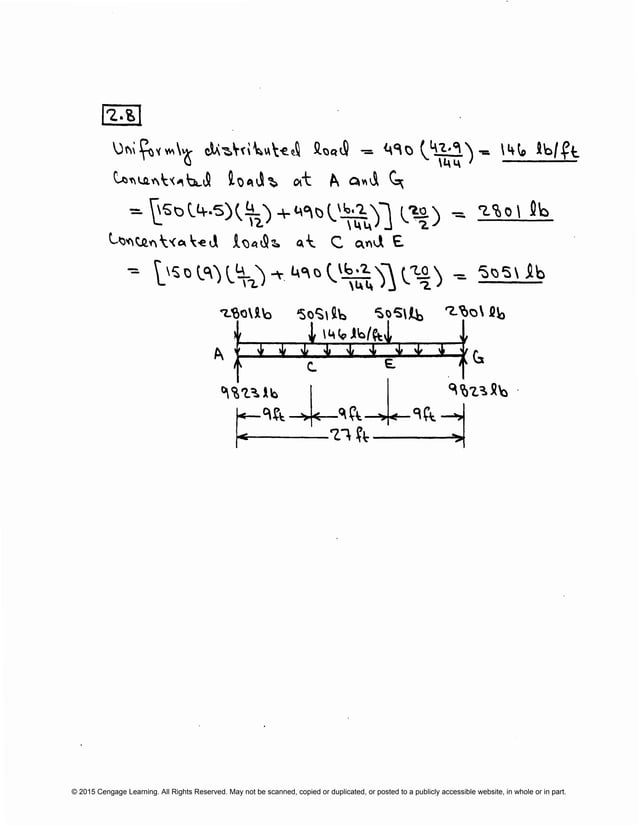 2.8
Uniformly distributed load = 490 (42.9/144) = 146 lb/ft
Concentrated loads at A and G
= [150(4.5)(4/12) + 490(16.2/144)] (20/2) = 2801 lb
Concentrated loads at C and E
= [150(9)(4/12) + 490(16.2/144)] (20/2) = 5051 lb
2801 lb 5051 lb 5051 lb 2801 lb
146 lb/ft
A G
C E
9823 lb 9823 lb
9 ft 9 ft 9 ft
27 ft
© 2015 Cengage Learning. All Rights Reserved. May not be scanned, copied or duplicated, or posted to a publicly accessible website, in whole or in part.